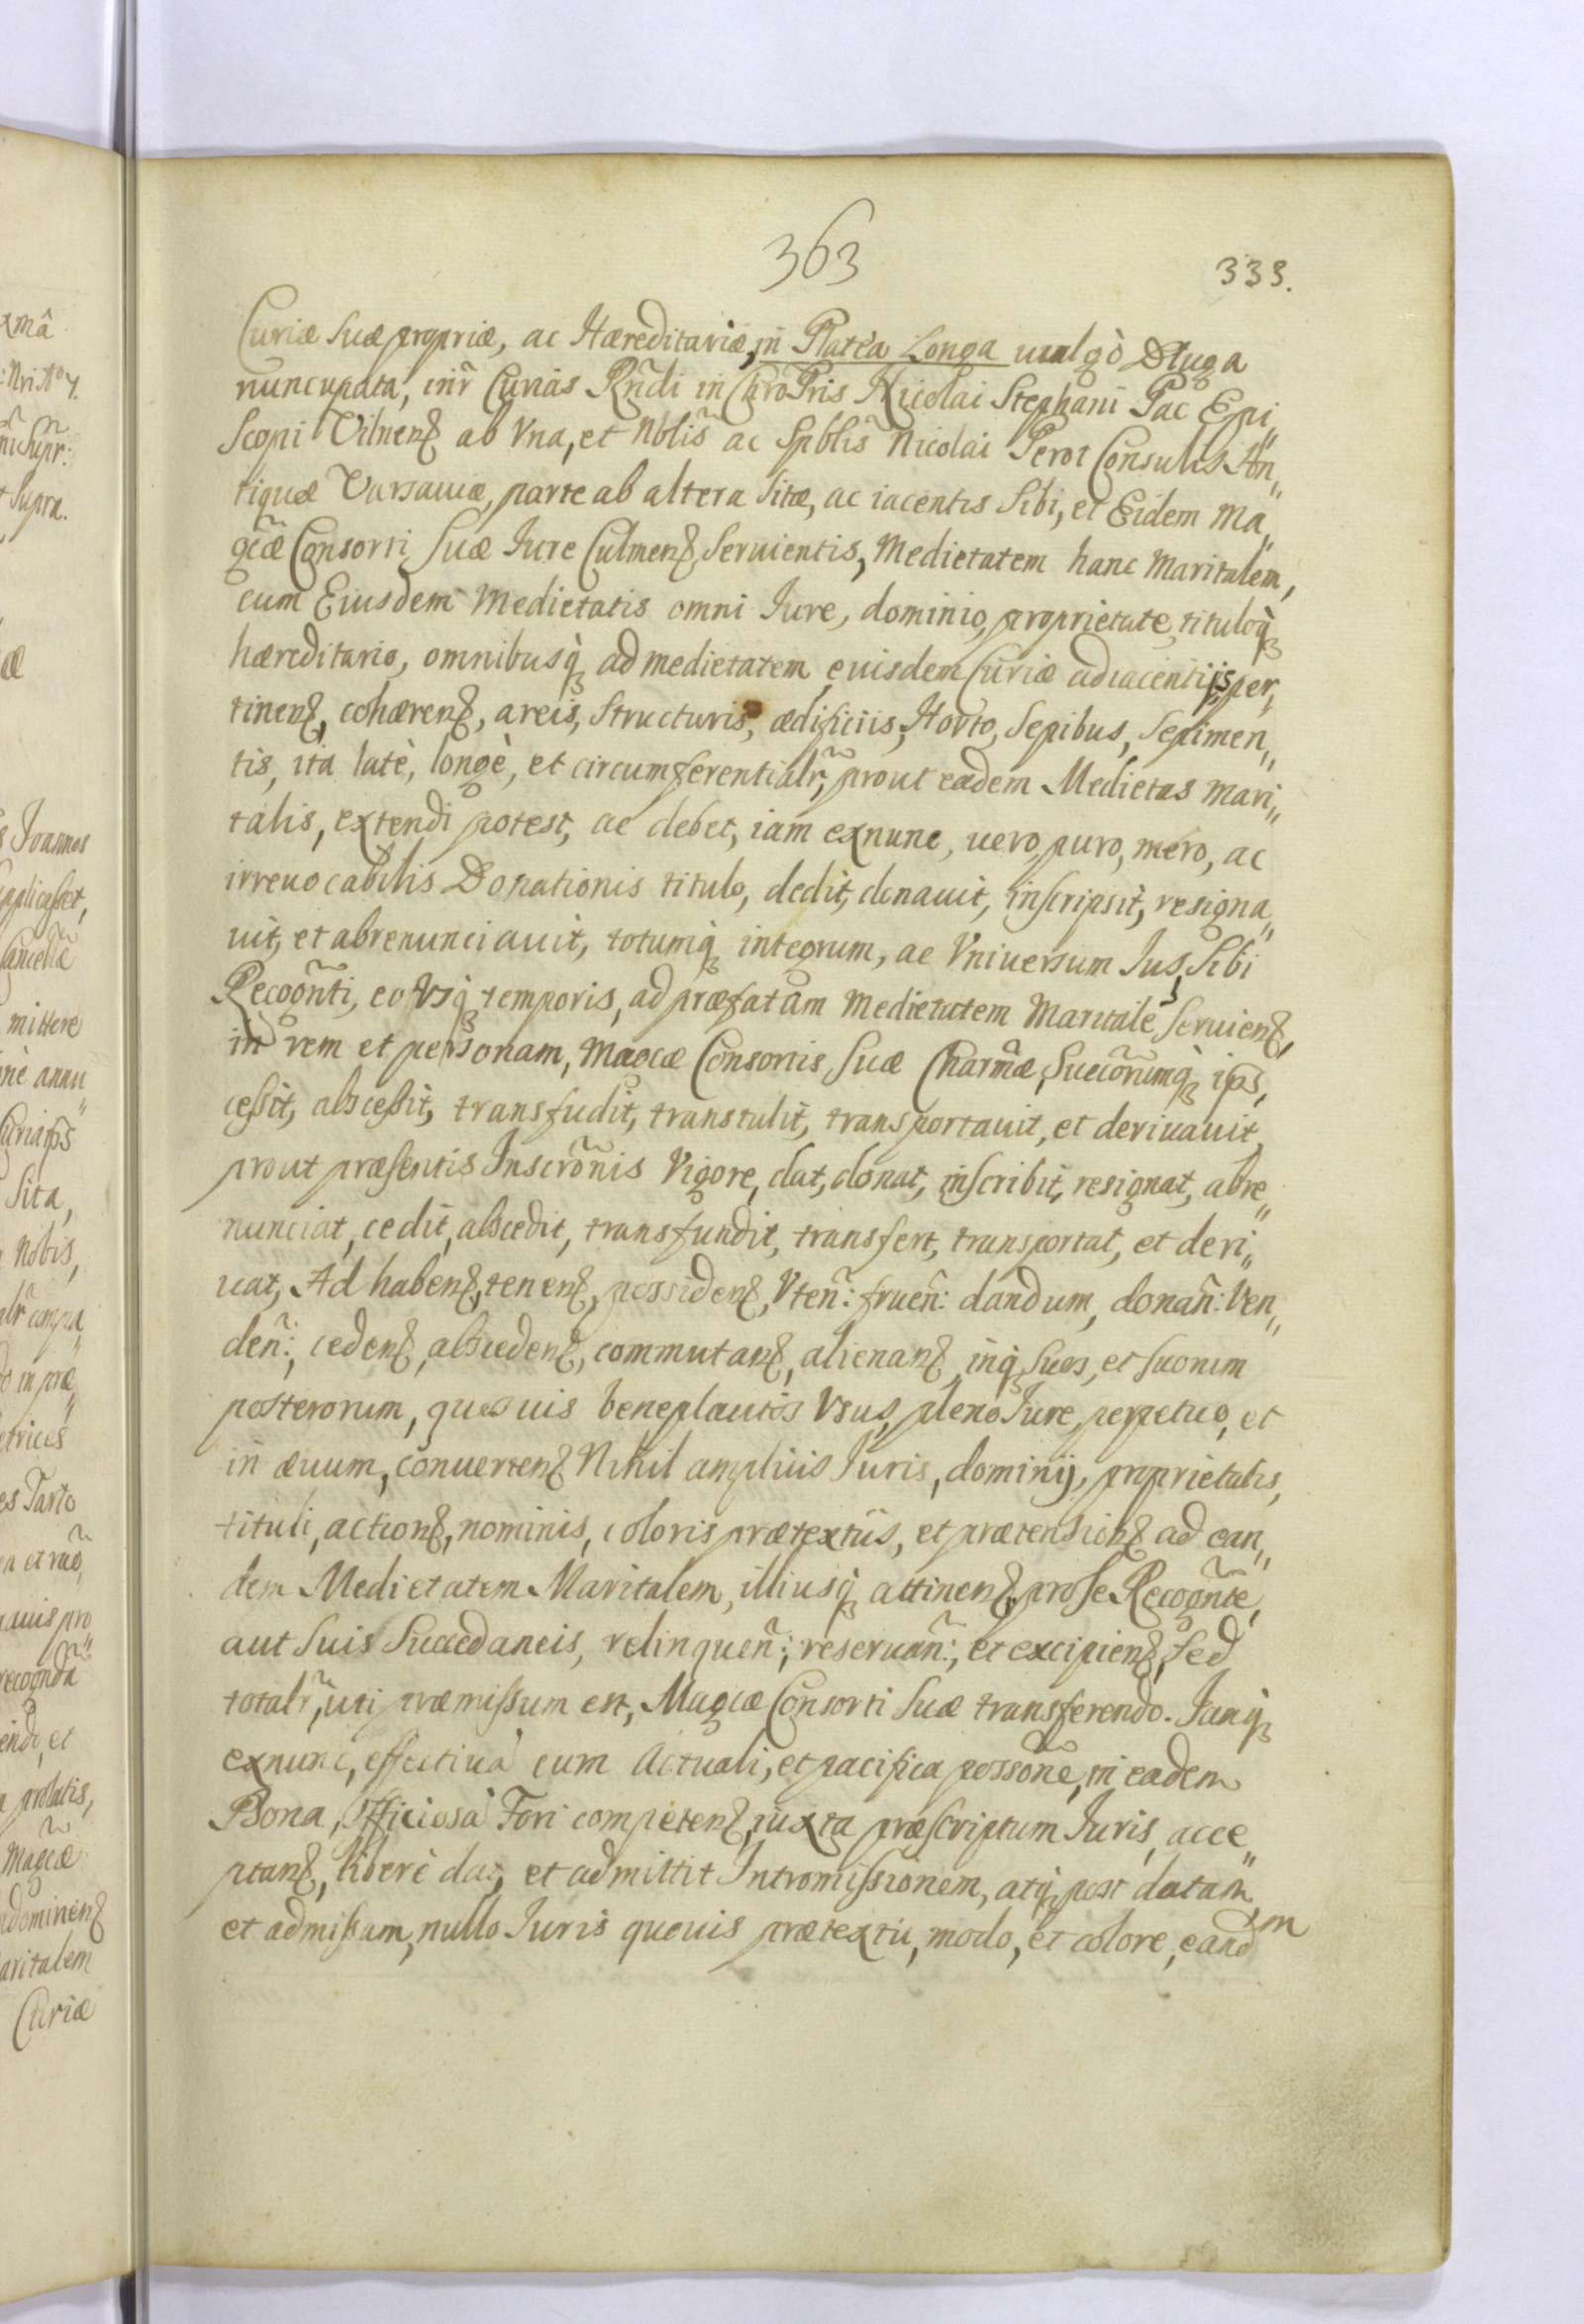 363
333.
Curiæ suæ propriæ, ac Hæreditariæ, in Platea Longa uulgò Długa
nuncupata, intr̃ Curias Rñdi in Chro Pris Nicolai Stephani Pac Epi„
scopi Vilnenß ab Vna, et Nblis̃ ac Spblis̃ Nicolai Perot Consulis An„
tiquæ Varsauiæ, parte ab altera sitæ, ac iacentis sibi, et Eidem Ma„
gcæ Consorti suæ Iure Culmenß seruientis, Medietatem hanc Maritalem,
cum Eiusdem Medietatis omni Iure, dominio, proprietate, tituloq̀
hæreditario, omnibusq̀ ad medietatem euisdem Curiæ adiacentijs, per„
tinenß, cohærenß, areis, structuris, ædificiis, Horto, sepibus, sepimen„
tis, ita latè, longè, et circumferentialr̃, prout eadem Medietas Mari„
talis, extendi potest, ac debet, iam exnunc, uero, puro, mero, ac
irreuocabilis Donationis titulo, dedit, donauit, inscripsit, resigna„
uit, et abrenunciauit, totumq̀ integrum, ac Vniuersum Ius, sibi
Recogñti, eo vsq̀ temporis, ad præfatam Medietatem Maritalẽ seruienß,
in rem et personam, Magcæ Consortis suæ Charm̃æ, Succõrumq̀ ips̃,
cessit, abscessit, transfudit, transtulit, transportauit, et deriuauit,
prout præsentis Inscrõnis Vigore, dat, donat, inscribit, resignat, abre„
nunciat, cedit, abscedit, transfundit, transfert, transportat, et deri„
uat, Ad habenß, tenenß, possidenß, Vteñ: frueñ: dandum, donañ: Ven„
deñ:, cedenß, abscedenß, commutanß, alienanß inq̀ suos, et suorum
posterorum, quosuis beneplacitos Vsus, pleno Iure, perpetuo, et
in æuum, conuertenß Nihil ampliùs Iuris, dominij, proprietatis,
tituli, actionß, nominis, coloris prætextùs, et prætensionß ad ean„
dem Medietatem Maritalem, illiusq̀ attinenß, pro se Recogñte,
aut suis succedaneis, relinqueñ:, reseruañ:, et excipienß, sed
totalr̃, uti præmissum est, Magcæ Consorti suæ transferendo. Ianq̀
exnunc, effectiuà cum Actuali, et pacifica possõne, in eadem
Bona, Officiosà Fori competenß, iuxta præscriptum Iuris, acce„
ptanß, liberè dat, et admittit Intromissionem, atq̀ post datam
et admissam, nullo Iuris quouis prætextu, modo, et colore, eandm